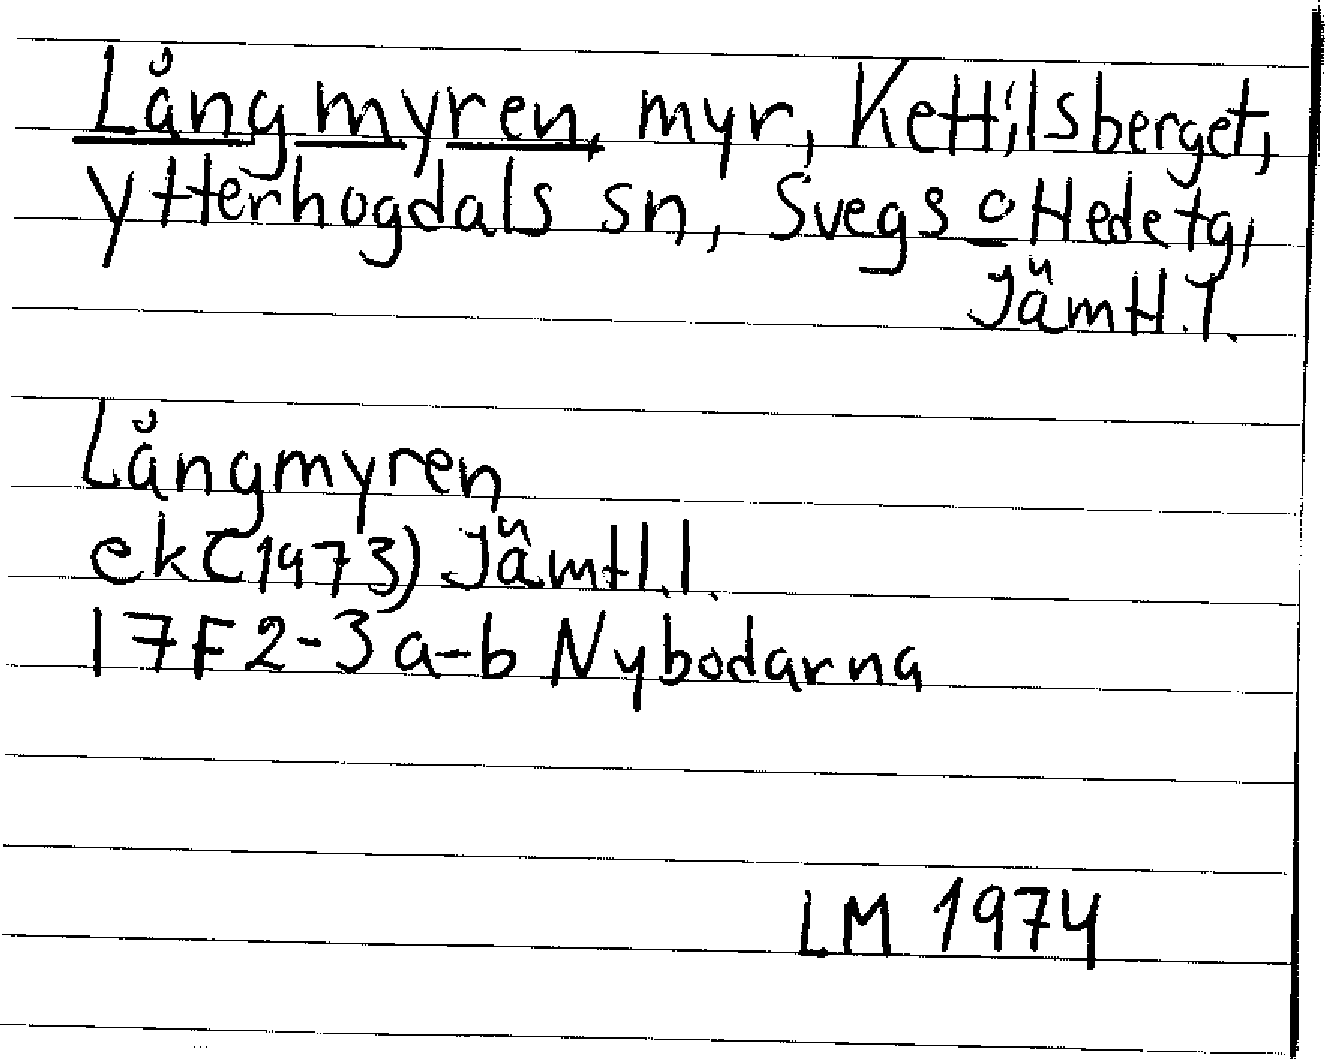 Långmyren, myr, Kettilsberget,
Ytterhogdals sn, Svegs o Hede tg,
Jämtl.l.
Långmyren
ek (1973) Jämtl.l.
17F2-3a-b Nybodarna
LM 1974